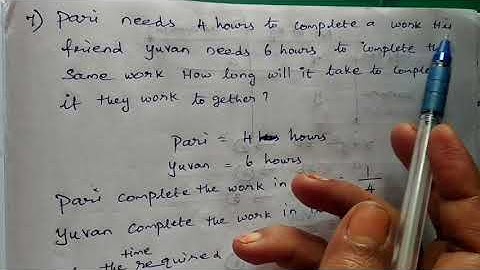 7) Pari needs 4 hours to complete a work His
friend yuvan needs 6 hours to complete the
same work How long will it take to comple
if they work to gether?
Pari = 4 hours
yuvan = 6 hours
Pari complete the work in 1/4
yuvan complete the work in
time
the required